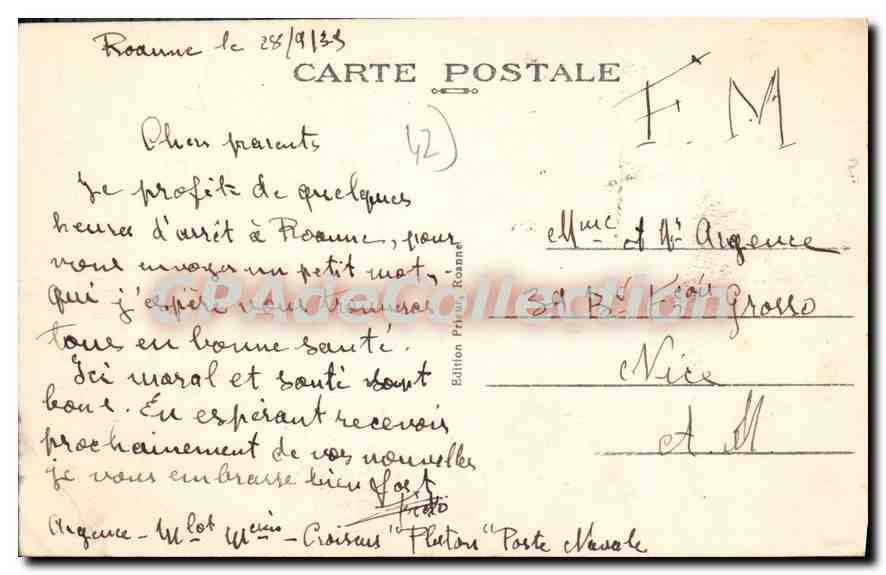 Roanne le 28/9/33
CARTE POSTALE
F. M
42)
Chers parents
Je profite de quelques
heures d'arrêt à Roanne, pour
vous envoyer un petit mot,
qui j'espère vous trouveras
tous en bonne santé.
Ici moral et santé sont
bons. En espérant recevoir
prochainement de vos nouvelles
je vous embrasse bien fort
Argence - Mlot - Croiseur "Pluton" Poste Navale
Edition Prieur, Roanne
Mme et Mr Argence
39 Bd Fçois Grosso
Nice
A M
CPAdeCollection.com